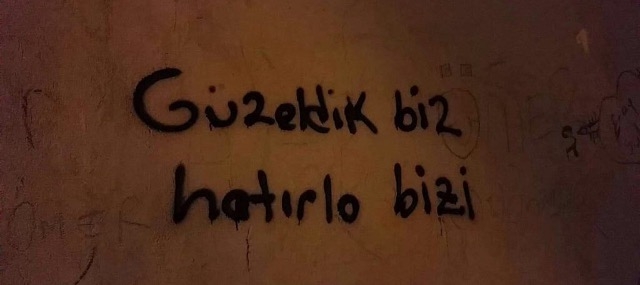 Güzeldik biz
hatırla bizi
ÖMER